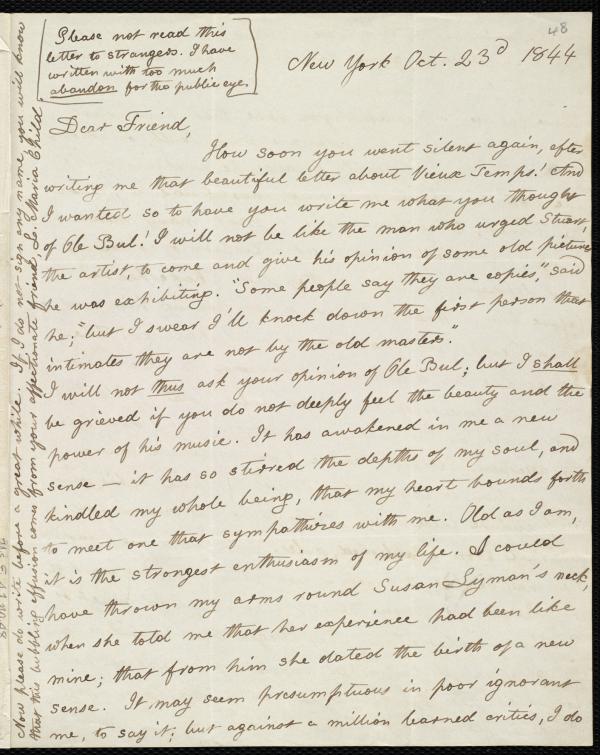 48
Please not read this
letter to strangers. I have
written with too much
abandon for the public eye.
New York Oct. 23d 1844
Dear Friend,
How soon you went silent again, after
writing me that beautiful letter about Vieux Temps! And
I wanted so to have you write me what you thought
of Ole Bul! I will not be like the man who urged Stuart,
the artist, to come and give his opinion of some old picture
he was exhibiting. "Some people say they are copies," said
he; "but I swear I'll knock down the first person that
intimates they are not by the old masters."
I will not thus ask your opinion of Ole Bul; but I shall
be grieved if you do not deeply feel the beauty and the
power of his music. It has awakened in me a new
sense — it has so stirred the depths of my soul, and
kindled my whole being, that my heart bounds forth
to meet one that sympathizes with me. Old as I am,
it is the strongest enthusiasm of my life. I could
have thrown my arms round Susan Lyman's neck,
when she told me that her experience had been like
mine; that from him she dated the birth of a new
sense. It may seem presumptuous in poor ignorant
me, to say it; but against a million learned critics, I do
Now please do write before a great while. If I do not sign any name, you will know
that this bubbling effusion comes from your affectionate friend, L. Maria Child.